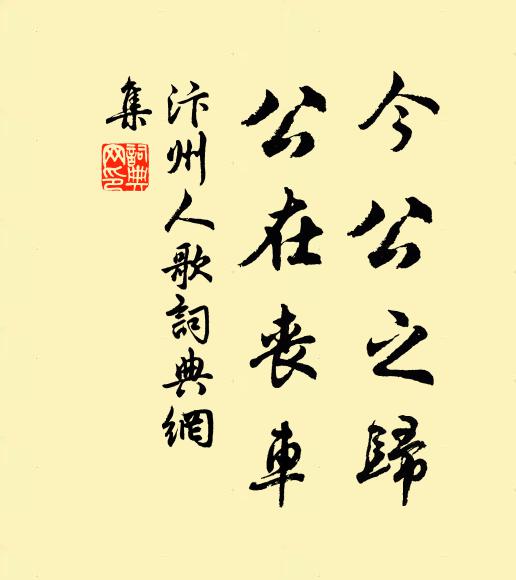 今公之歸
公在喪車
汴州人歌詞典網
集
詞典網印